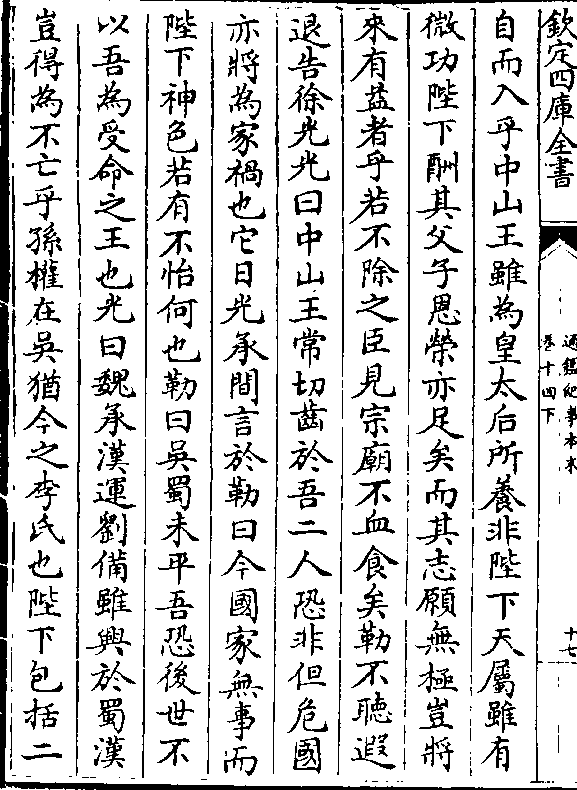 欽定四庫全書
通鑑紀事本末
卷十四下
十七
自而入乎中山王雖為皇太后所養非陛下天屬雖有
微功陛下酬其父子恩榮亦足矣而其志願無極豈將
來有益者乎若不除之臣見宗廟不血食矣勒不聽遐
退告徐光光曰中山王常切齒於吾二人恐非但危國
亦將為家禍也它日光承間言於勒曰今國家無事而
陛下神色若有不怡何也勒曰吳蜀未平吾恐後世不
以吾為受命之王也光曰魏承漢運劉備雖興於蜀漢
豈得為不亡乎孫權在吳猶今之李氏也陛下包括二